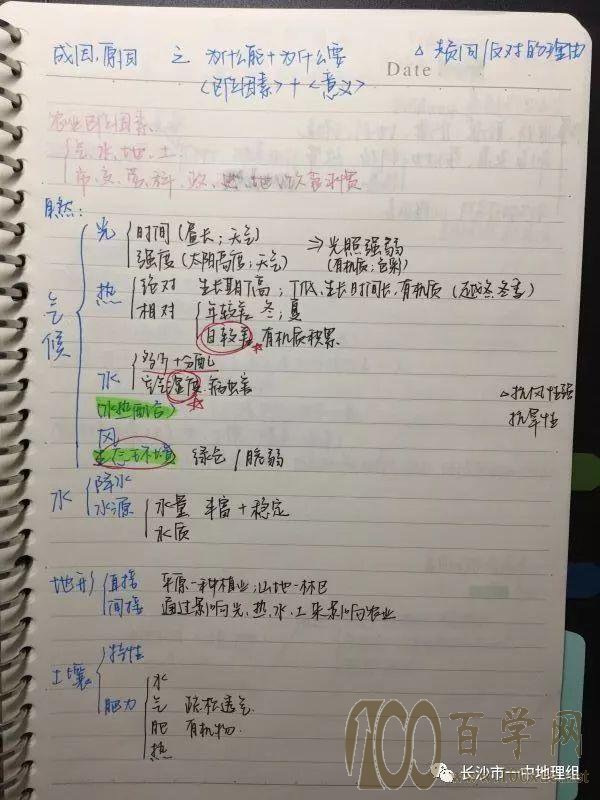 成因、原因 之 为什么能+为什么要
<区位因素>+<意义>
△ 赞同/反对的理由
Date
农业区位因素
气、水、地、土
自然:
气候
光
时间(昼长;天气)
强度(太阳高度;天气)
⇒光照强弱
热
绝对 生长期T高;T低、生长时间长、有机质
相对
年较差 冬;夏
日较差 有机质积累
水
空气湿度 病虫害
(水热配合)
△抗风性强
抗旱性
风
生态环境 绿色/脆弱
水
降水
水源
水量 丰富+稳定
水质
地形
直接 平原-种植业;山地-林区
间接 通过影响光、热、水、土来影响农业
土壤
特性
肥力
水
气 疏松透气
肥 有机物
热
100百学网
长沙市一中地理组